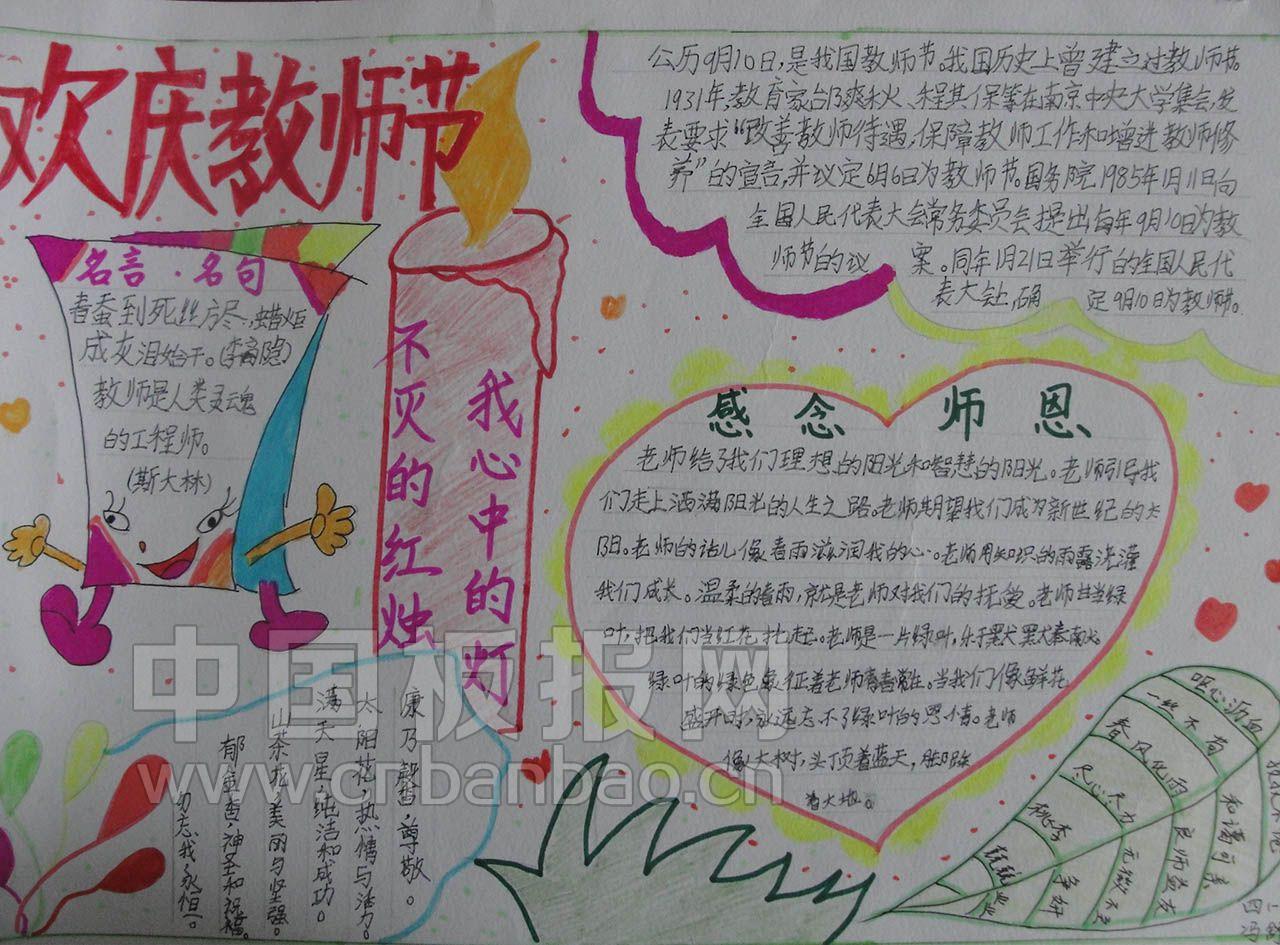 欢庆教师节
公历9月10日,是我国教师节。我国历史上曾建立过教师节。
1931年,教育家邰爽秋、程其保等在南京中央大学集会,发
表要求“改善教师待遇,保障教师工作和增进教师修
养”的宣言,并议定6月6日为教师节。国务院1985年1月11日向
全国人民代表大会常务委员会提出每年9月10日为教
师节的议 案。同年1月21日举行的全国人民代
表大会,确 定9月10日为教师节。
名言·名句
春蚕到死丝方尽,蜡炬
成灰泪始干。(李商隐)
教师是人类灵魂
的工程师。
(斯大林)
不灭的红烛
我心中的灯
感念师恩
老师给了我们理想的阳光和智慧的阳光。老师引导我
们走上洒满阳光的人生之路。老师期望我们成为新世纪的太
阳。老师的话儿像春雨滋润我的心。老师用知识的雨露浇灌
我们成长。温柔的春雨,就是老师对我们的抚爱。老师甘当绿
叶,把我们当红花扎起。老师是一片绿叶,乐于默默奉献
绿叶的绿色象征着老师青春常在。当我们像鲜花
盛开时,永远忘不了绿叶的恩情。老师
像大树,头顶着蓝天,脚踩
着大地。
康乃馨,尊敬。
太阳花,热情与活力。
满天星,纯洁和成功。
山茶花,美丽与坚强。
郁金香,神圣和祝福。
勿忘我,永恒。
呕心沥血
一丝不苟
春风化雨
尽心尽力
桃李争妍
兢兢业业
无微不至
良师益友
和蔼可亲
四
冯
中国板报网
www.cnbanbao.cn